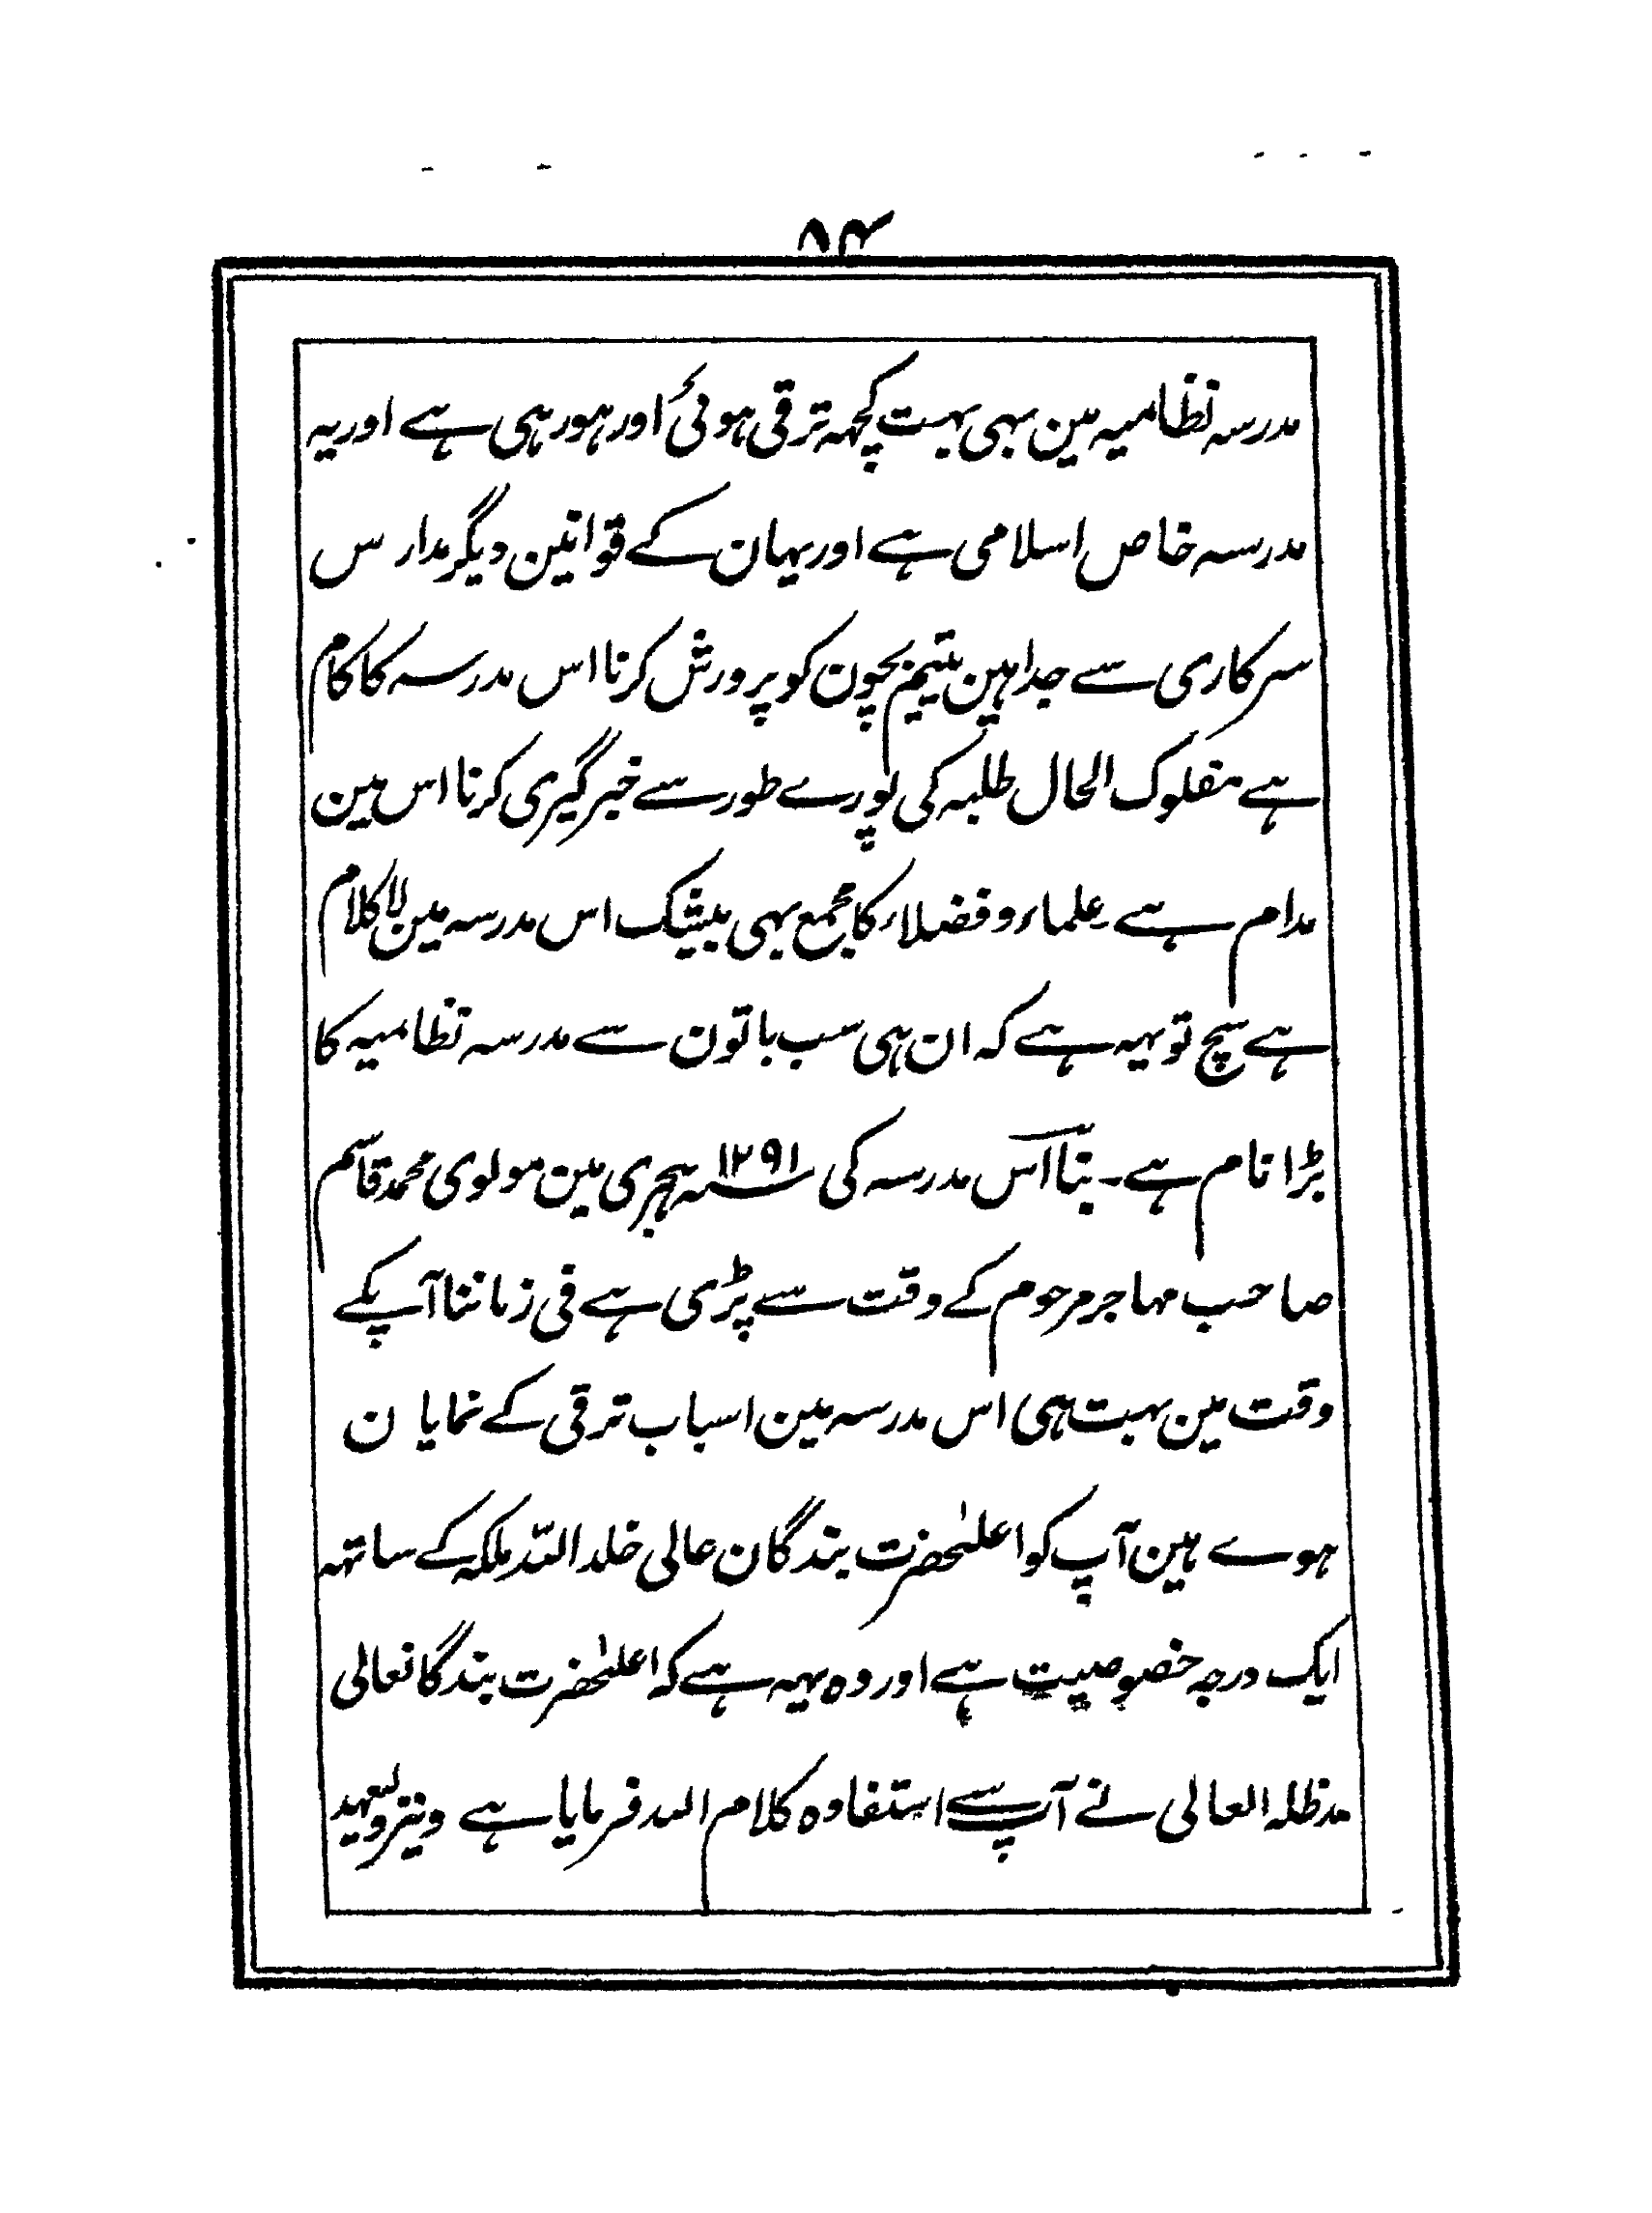 ۸۴
مدرسہ نظامیہ مین بہی بہت کچہہ ترقی ہوئی اور ہورہی ہے اور یہ
مدرسہ خاص اسلامی ہے اور یہان کے قوانین دیگر مدارس
سرکاری سے جدا ہین یتیم بچون کو پرورش کرنا اس مدرسہ کا کام
ہے مفلوک الحال طلبہ کی پورے طور سے خبرگیری کرنا اس مین
مدام ہے علماء و فضلاء کا مجمع بہی بیشک اس مدرسہ مین لا کلام
ہے سچ تو یہہ ہے کہ ان ہی سب باتون سے مدرسہ نظامیہ کا
بڑا نام ہے۔ بنا اس مدرسہ کی ۱۲۹۱ سنہ ہجری مین مولوی محمد قاسم
صاحب مہاجر مرحوم کے وقت سے پڑی ہے فی زماننا آپکے
وقت مین بہت ہی اس مدرسہ مین اسباب ترقی کے نمایان
ہوے ہین آپ کو اعلیٰحضرت بندگان عالی خلد اللہ ملکہ کے ساتہہ
ایک درجہ خصوصیت ہے اور وہ یہہ ہے کہ اعلیٰحضرت بندگانعالی
مدظلہ العالی نے آپ سے استفادہ کلام اللہ فرمایا ہے و نیز ولیعہد